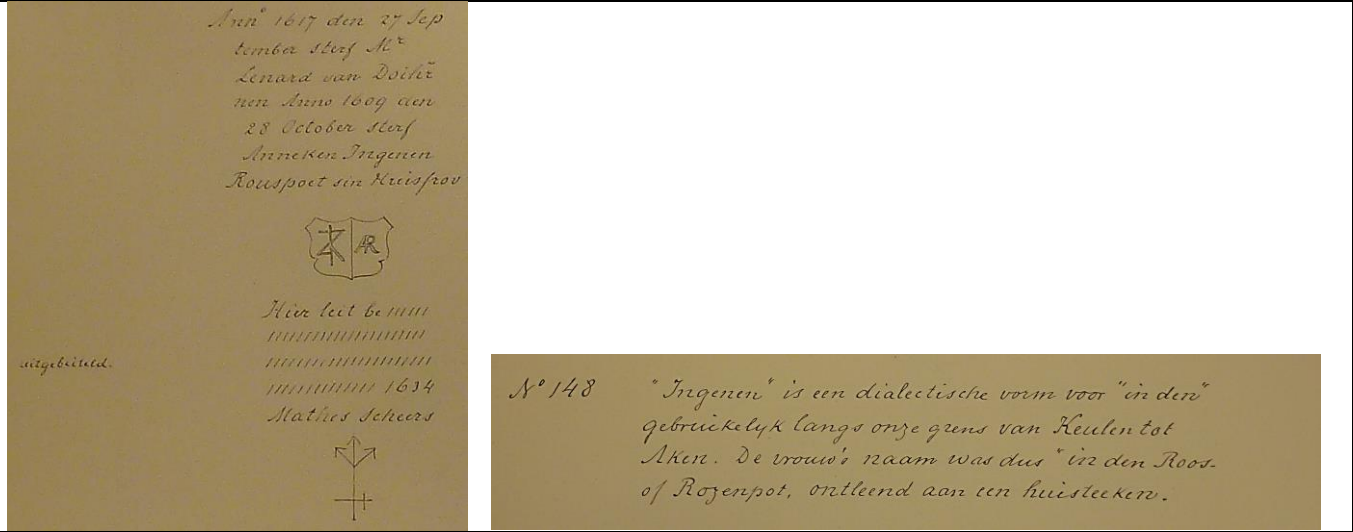 Ann° 1617 den 27 Sep
tember sterf Mr
Lenard van
nen Anno 1609 den
28 October sterf
Anneken Ingenen
Rouspoet sin Hŭisfrov
AR
Hier leit be
uitgebeiteld.
1634
Mathes Scheers
N° 148 "Ingenen" is een dialectische vorm voor "in den"
gebruikelyk langs onze grens van Keulen tot
Aken. De vrouw's naam was dus "in den Roos-
of Rozenpot, ontleend aan een huisteeken.